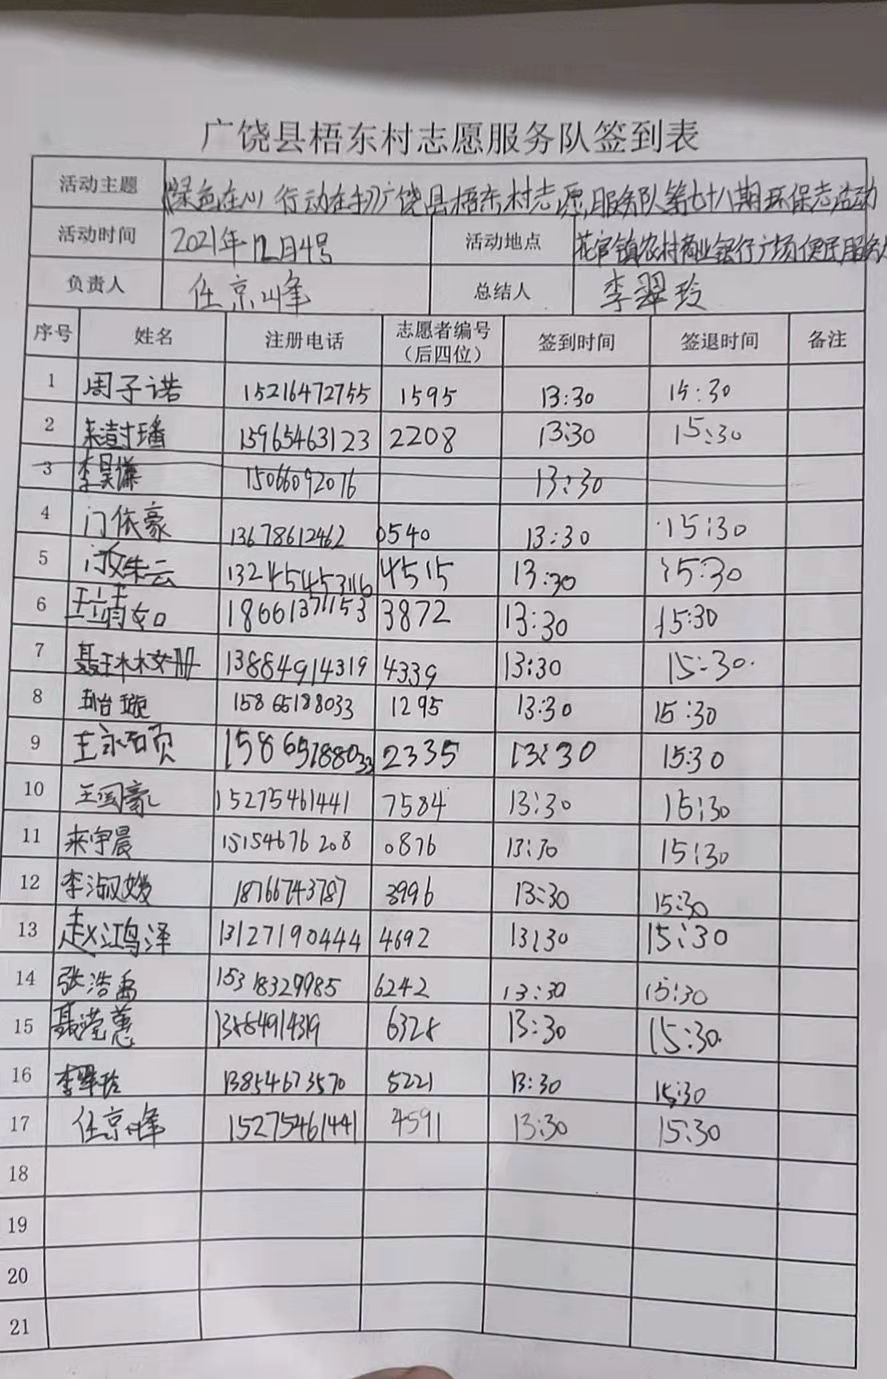 广饶县梧东村志愿服务队签到表
活动主题 《绿色在心 行动在手》广饶县梧东村志愿服务队第七十八期环保志活动
活动时间 2021年12月4号 活动地点 花官镇农村商业银行广场便民服务
负责人 任京峰 总结人 李翠玲
序号 姓名 注册电话 志愿者编号（后四位） 签到时间 签退时间 备注
1 周子诺 15216472755 1595 13:30 15:30
2 15965463123 2208 13:30 15:30
3 李昊谦 15066092076 13:30
4 门依豪 13678612462 0540 13:30 15:30
5 4515 13:30 15:30
6 18661371153 3872 13:30 15:30
7 聂琳姗 13884914319 4339 13:30 15:30
8 15865188033 1295 13:30 15:30
9 王永硕 15865188033 2335 13:30 15:30
10 王国豪 15275461441 7584 13:30 15:30
11 来宇晨 15154676208 0876 13:30 15:30
12 李淑媛 18766743787 3996 13:30 15:30
13 赵鸿泽 13127190444 4692 13:30 15:30
14 张浩 15318329985 6242 13:30 15:30
15 聂滢蕙 13884914319 6328 13:30 15:30
16 李翠玲 13854673570 5221 13:30 15:30
17 任京峰 15275461441 4591 13:30 15:30
18
19
20
21